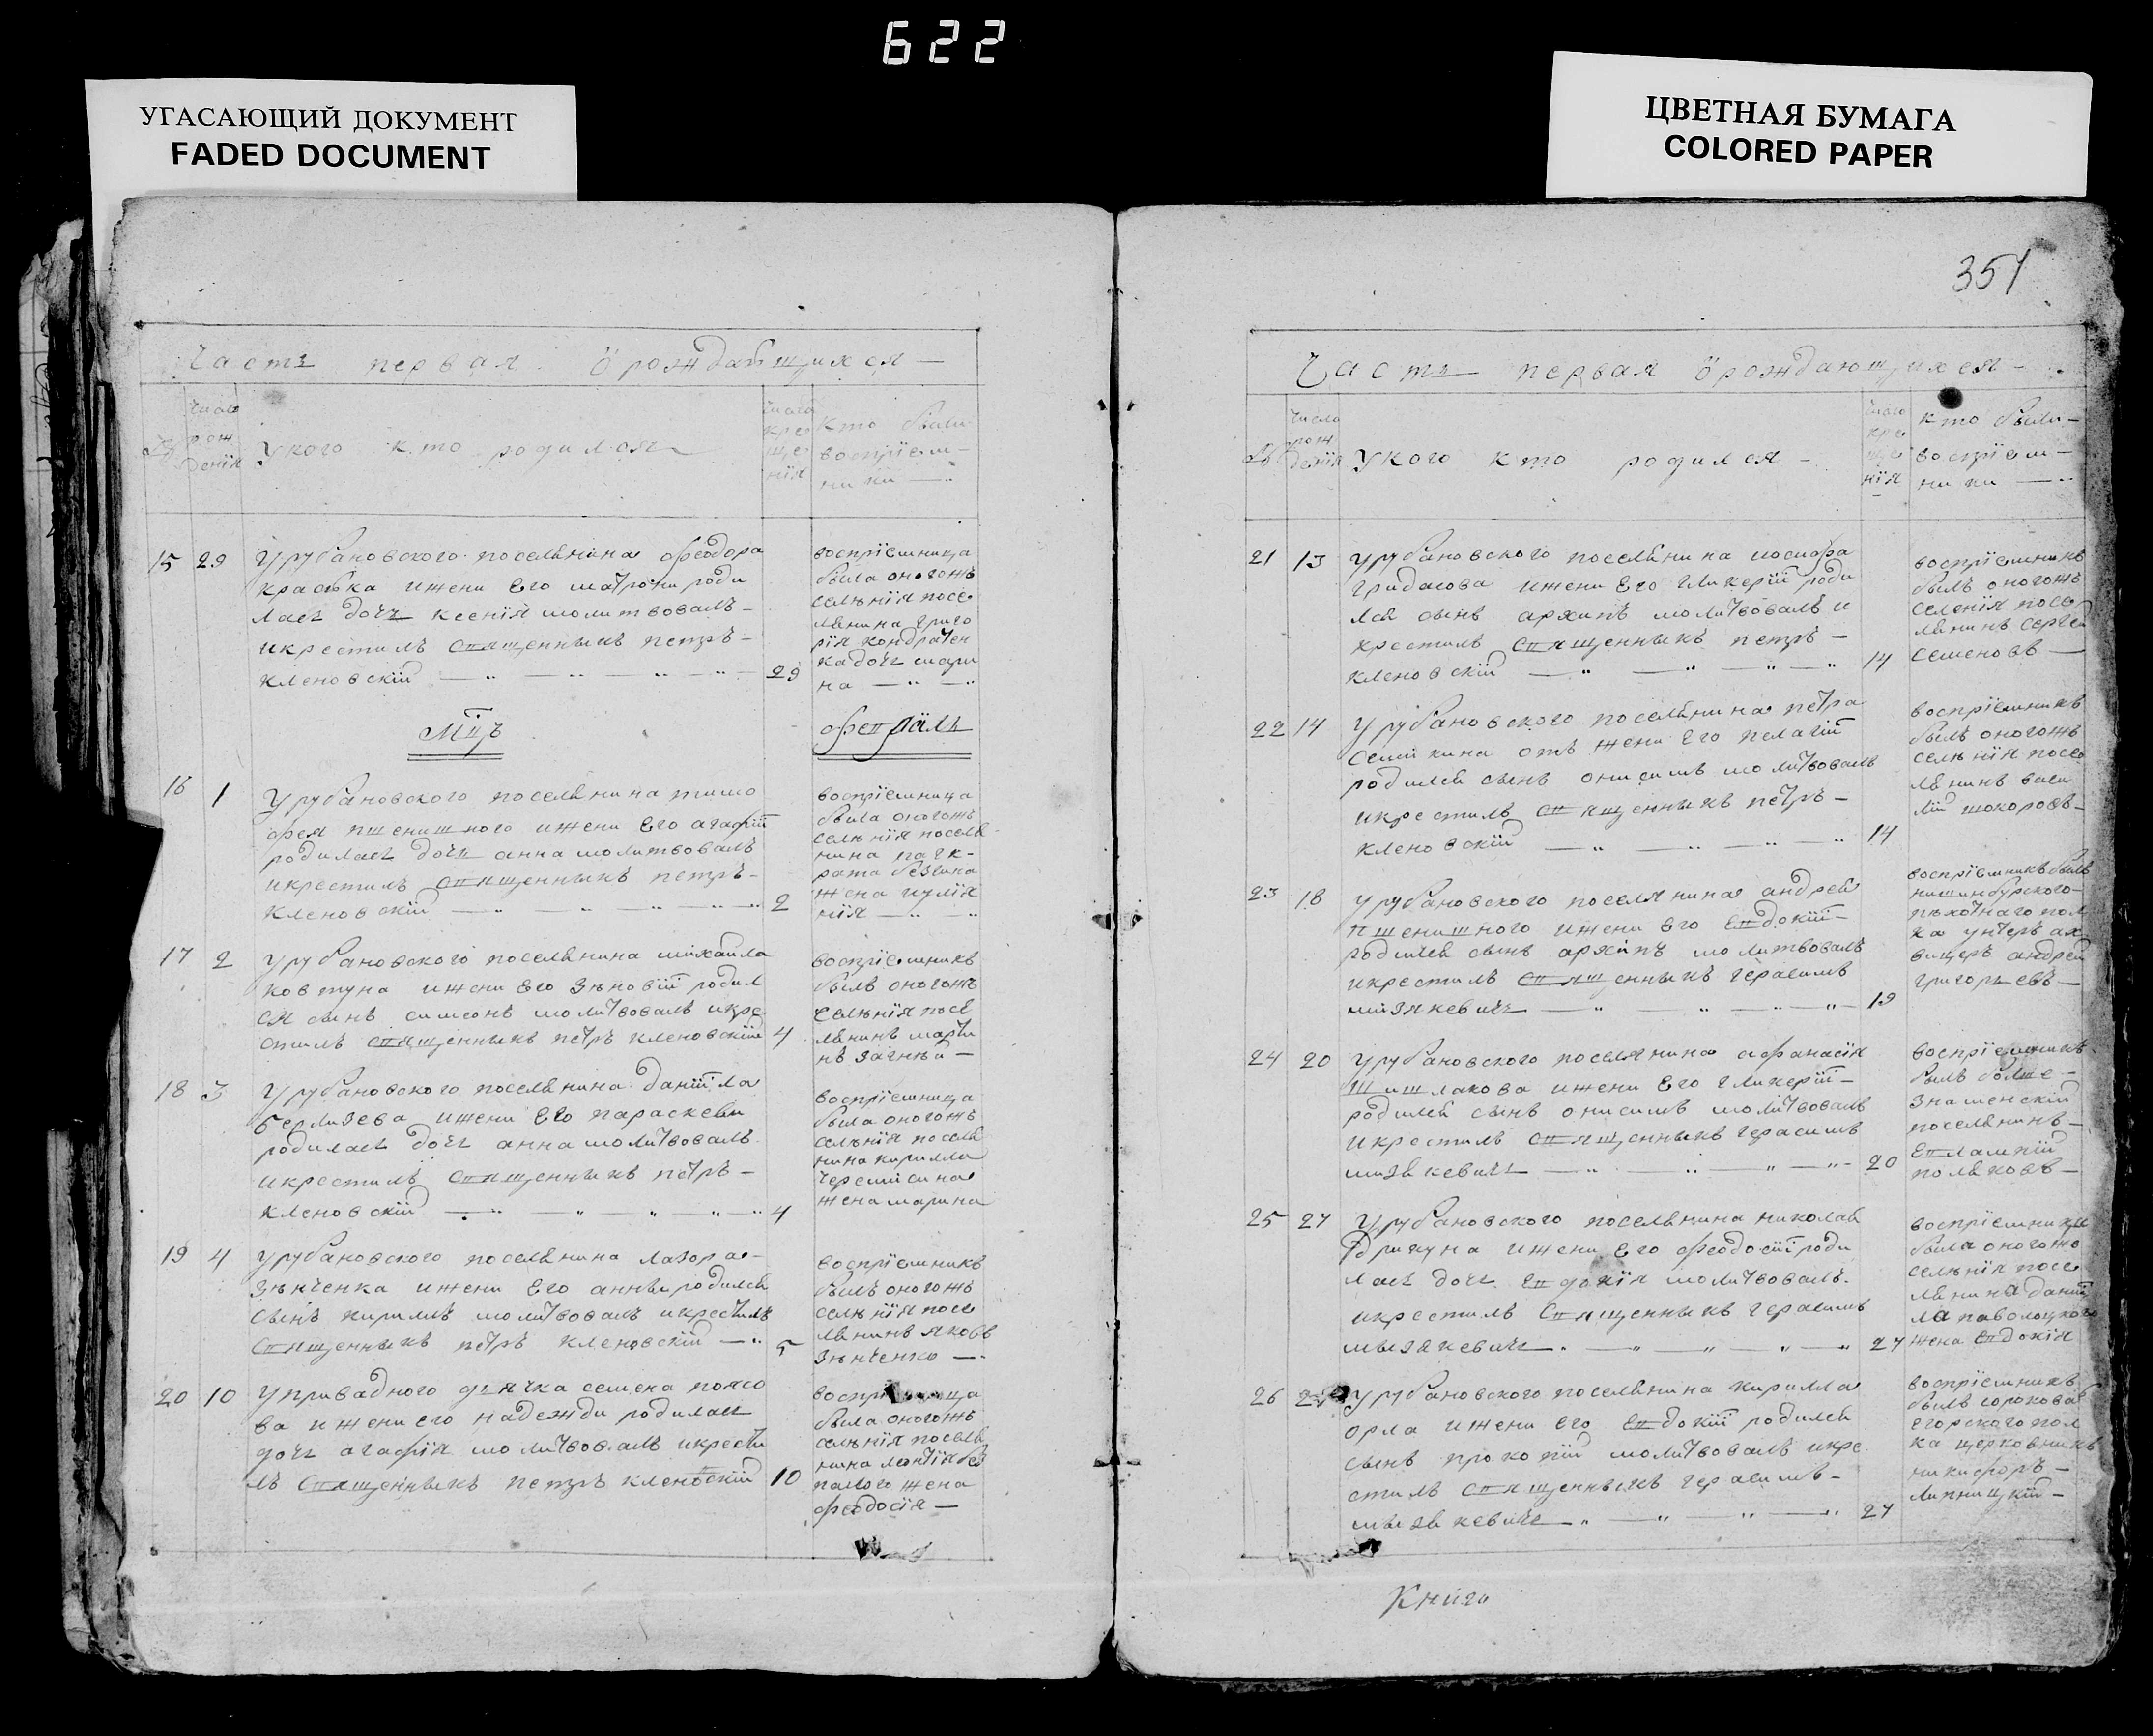 622
УГАСАЮЩИЙ ДОКУМЕНТ
FADED DOCUMENT
ЦВЕТНАЯ БУМАГА
COLORED PAPER
351
Часть первая ӧ рождающихся —
Число рождения
У кого кто родился
Число крещения
Кто были
воспріем—
ники —
15 29 У рубановского поселянина феодора
краснка и жени Его матрони роди
лась дочь ксенія молитвовалъ —
и крестилъ священникъ петръ —
кленовскій 29
воспріемница
была оногожъ
селѣнія посе
лянина григо
рія кондратен
ка дочь
на
Мц̃ъ февраль
16 1 У рубановского поселянина тимо
фея пшенишного и жени Его агафіи
родилась дочь анна молитвовалъ
и крестилъ священникъ петръ —
кленовскій 2
воспріемница
была оногожъ
селѣнія поселя
нина
жена іулія
нія
17 2 У рубановского поселянина михаила
ковтуна и жени Его зѣновіи родил
ся сынъ симеонъ молитвовалъ и кре
стилъ священникъ петръ кленовскій 4
воспріемникъ
былъ оногожъ
селѣнія посе
лянинъ марти
нъ
18 3 У рубановского поселянина даніила
бермзева и жени Его параскеви
родилась дочь анна молитвовалъ
и крестилъ священникъ петръ —
кленовскій 4
воспріемница
была оногожъ
селѣнія поселя
нина кирилла
жена марина
19 4 У рубановского поселянина лазора —
зѣнченка и жени Его анны родился
сынъ кирилъ молитвовалъ и крестилъ
священникъ петръ кленовскій 5
воспріемникъ
былъ оногожъ
селѣнія посе
лянинъ яковъ
зѣнченко —
20 10 У привадного дячка семена поясо
ва и жени его надежди родилась
дочь агафія молитвовалъ и крести
лъ священникъ петръ кленовскій 10
была оногожъ
селѣнія поселя
нина леонтія без
палого жена
феодосія —
Часть первая ӧ рождающихся —
Число рождения
У кого кто родился —
Число крещенія
кто были —
воспріем—
ники —
21 13 У рубановского поселянина иосифа
гридасова и жени Его гликеріи роди
лся сынъ архипъ молитвовалъ и
крестилъ священникъ петръ —
кленовскій 14
воспріемникъ
былъ оногожъ
селенія посе
лянинъ сергей
семеновъ —
22 14 У рубановского поселянина петра
семикина отъ жени Его пелагіи
родился сынъ онисимъ молитвовалъ
и крестилъ священникъ петръ —
кленовскій 14
воспріемникъ
былъ оногожъ
селѣнія посе
лянинъ васи
лій шокоровъ —
23 18 У рубановского поселянина андрея
пшенишного и жени Его Евдокіи —
родился сынъ архипъ молитвовалъ
и крестилъ священникъ герасимъ
мизякевичъ 19
воспріемникъ былъ
нишинбурского
пѣхотнаго пол
ка унтеръ ах
вицеръ андрей
григорьевъ —
24 20 У рубановского поселянина афанасія
шишлакова и жени Его гликеріи —
родился сынъ онисимъ молитвовалъ
и крестилъ священникъ герасимъ
мизякевичъ 20
воспріемникъ
былъ болше —
знаменскій
поселянинъ —
Евлампій
поляковъ —
25 27 У рубановского поселянина николая
дрижуна и жени Его феодосіи роди
лась дочь Евдокія молитвовалъ
и крестилъ священникъ герасимъ
мызякевичъ 27
воспріемница
была оногожъ
селѣнія посе
лянина даніи
ла паволоцкого
жена Евдокія
26 У рубановского поселянина кирилла
орла и жени Его Евдокіи родился
сынъ прокопій молитвовалъ и кре
стилъ священникъ герасимъ —
мызякевичъ 27
воспріемникъ
былъ сорокова
Егорского пол
ка церковникъ
никифоръ —
липницкій —
Книга